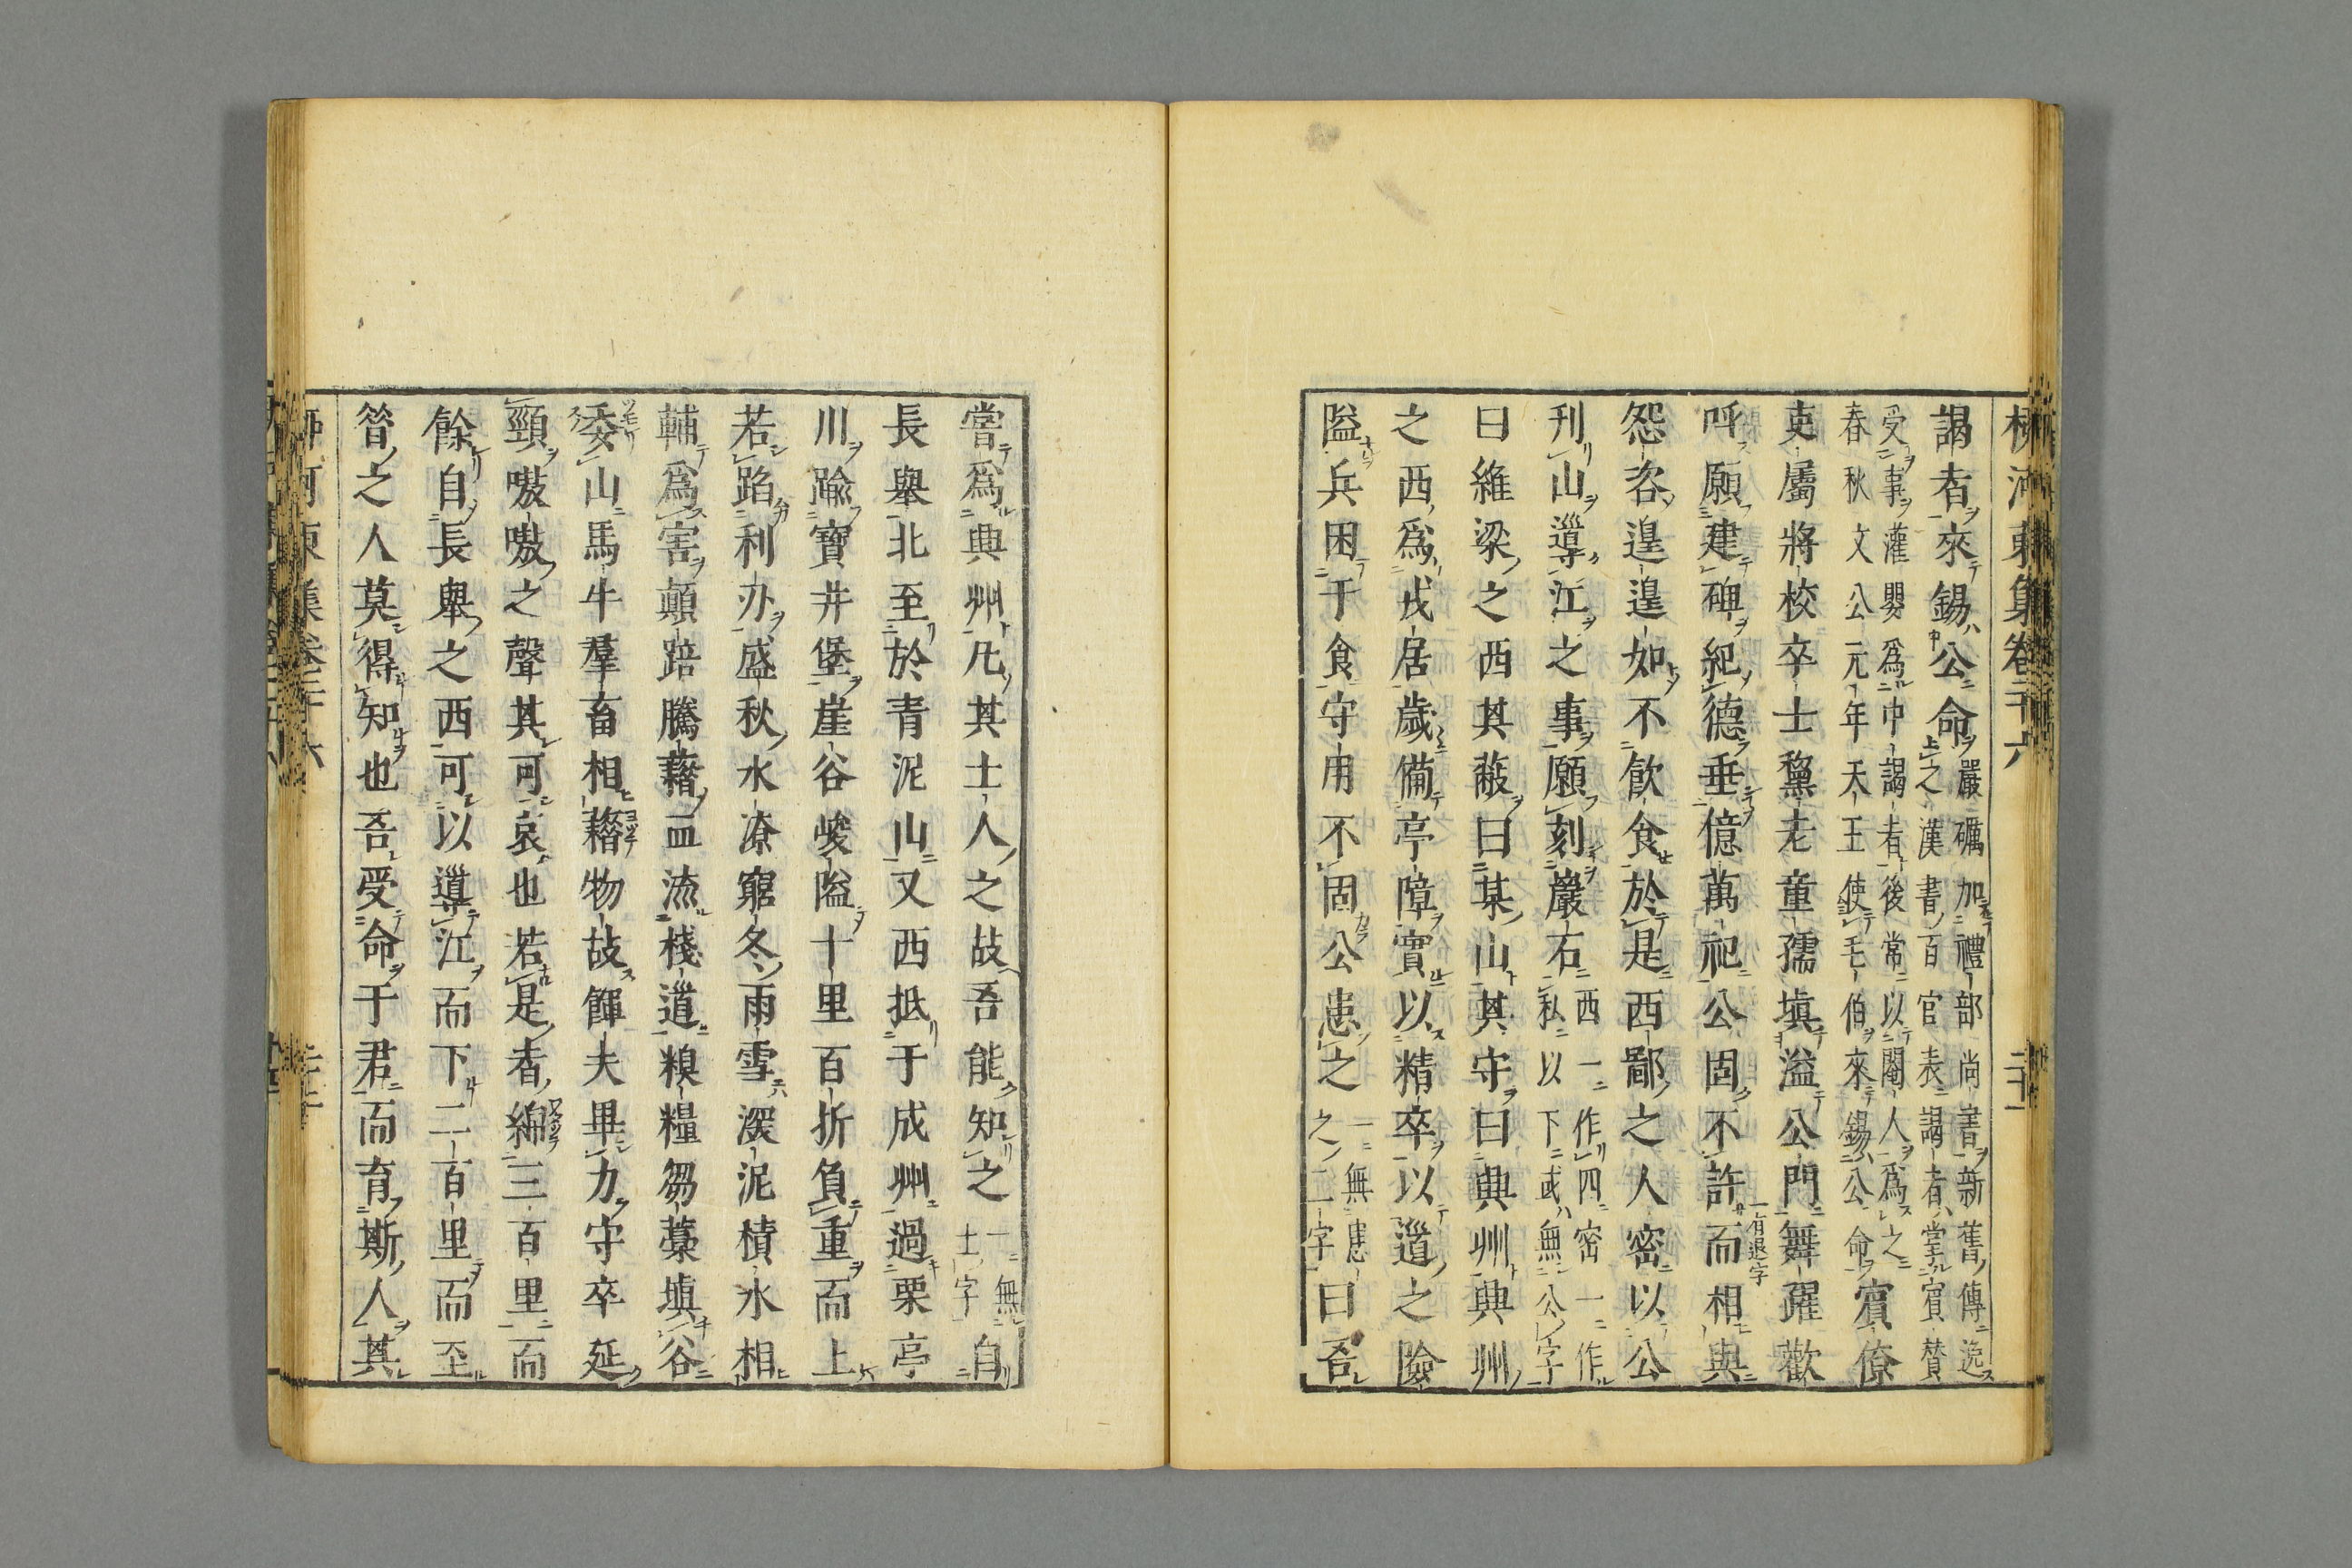 柳河東集卷二十六 二十一
謁者來錫公命嚴礪加禮部尚書新舊傳逸
之漢書百官表謁者掌賓賛
受事灌嬰爲中謁者後常以閹人爲之
春秋文公元年天王使毛伯來錫公命賓僚
吏屬將校卒士黧老童孺填溢公門舞躍歡
呼願建碑紀德垂億萬祀公固不許而相與
一有退字
怨咨遑遑如不飲食於是西鄙之人密以公
刋山導江之事願刻巖石西一作四密一作
私以下或無公字
曰維梁之西其蔽曰某山其守曰興州興州
之西爲戎居歲備亭障實以精卒以道之險
隘兵困于食守用不固公患之一無患
之二字曰吾
嘗爲興州凡其士人之故吾能知之一無
士字自
長舉北至於青泥山又西抵于成州過栗亭
川踰寶井堡崖谷峻隘十里百折負重而上
若蹈利刃盛秋水潦窮冬雨雪深泥積水相
輔爲害顛踣騰藉血流棧道糗糧芻藁填谷
委山馬牛羣畜相藉物故餫夫畢力守卒延
頸嗷嗷之聲其可哀也若是者綿三百里而
餘自長舉之西可以導江而下二百里而至
昝之人莫得知也吾受命于君而育斯人其
柳河東集卷二十六